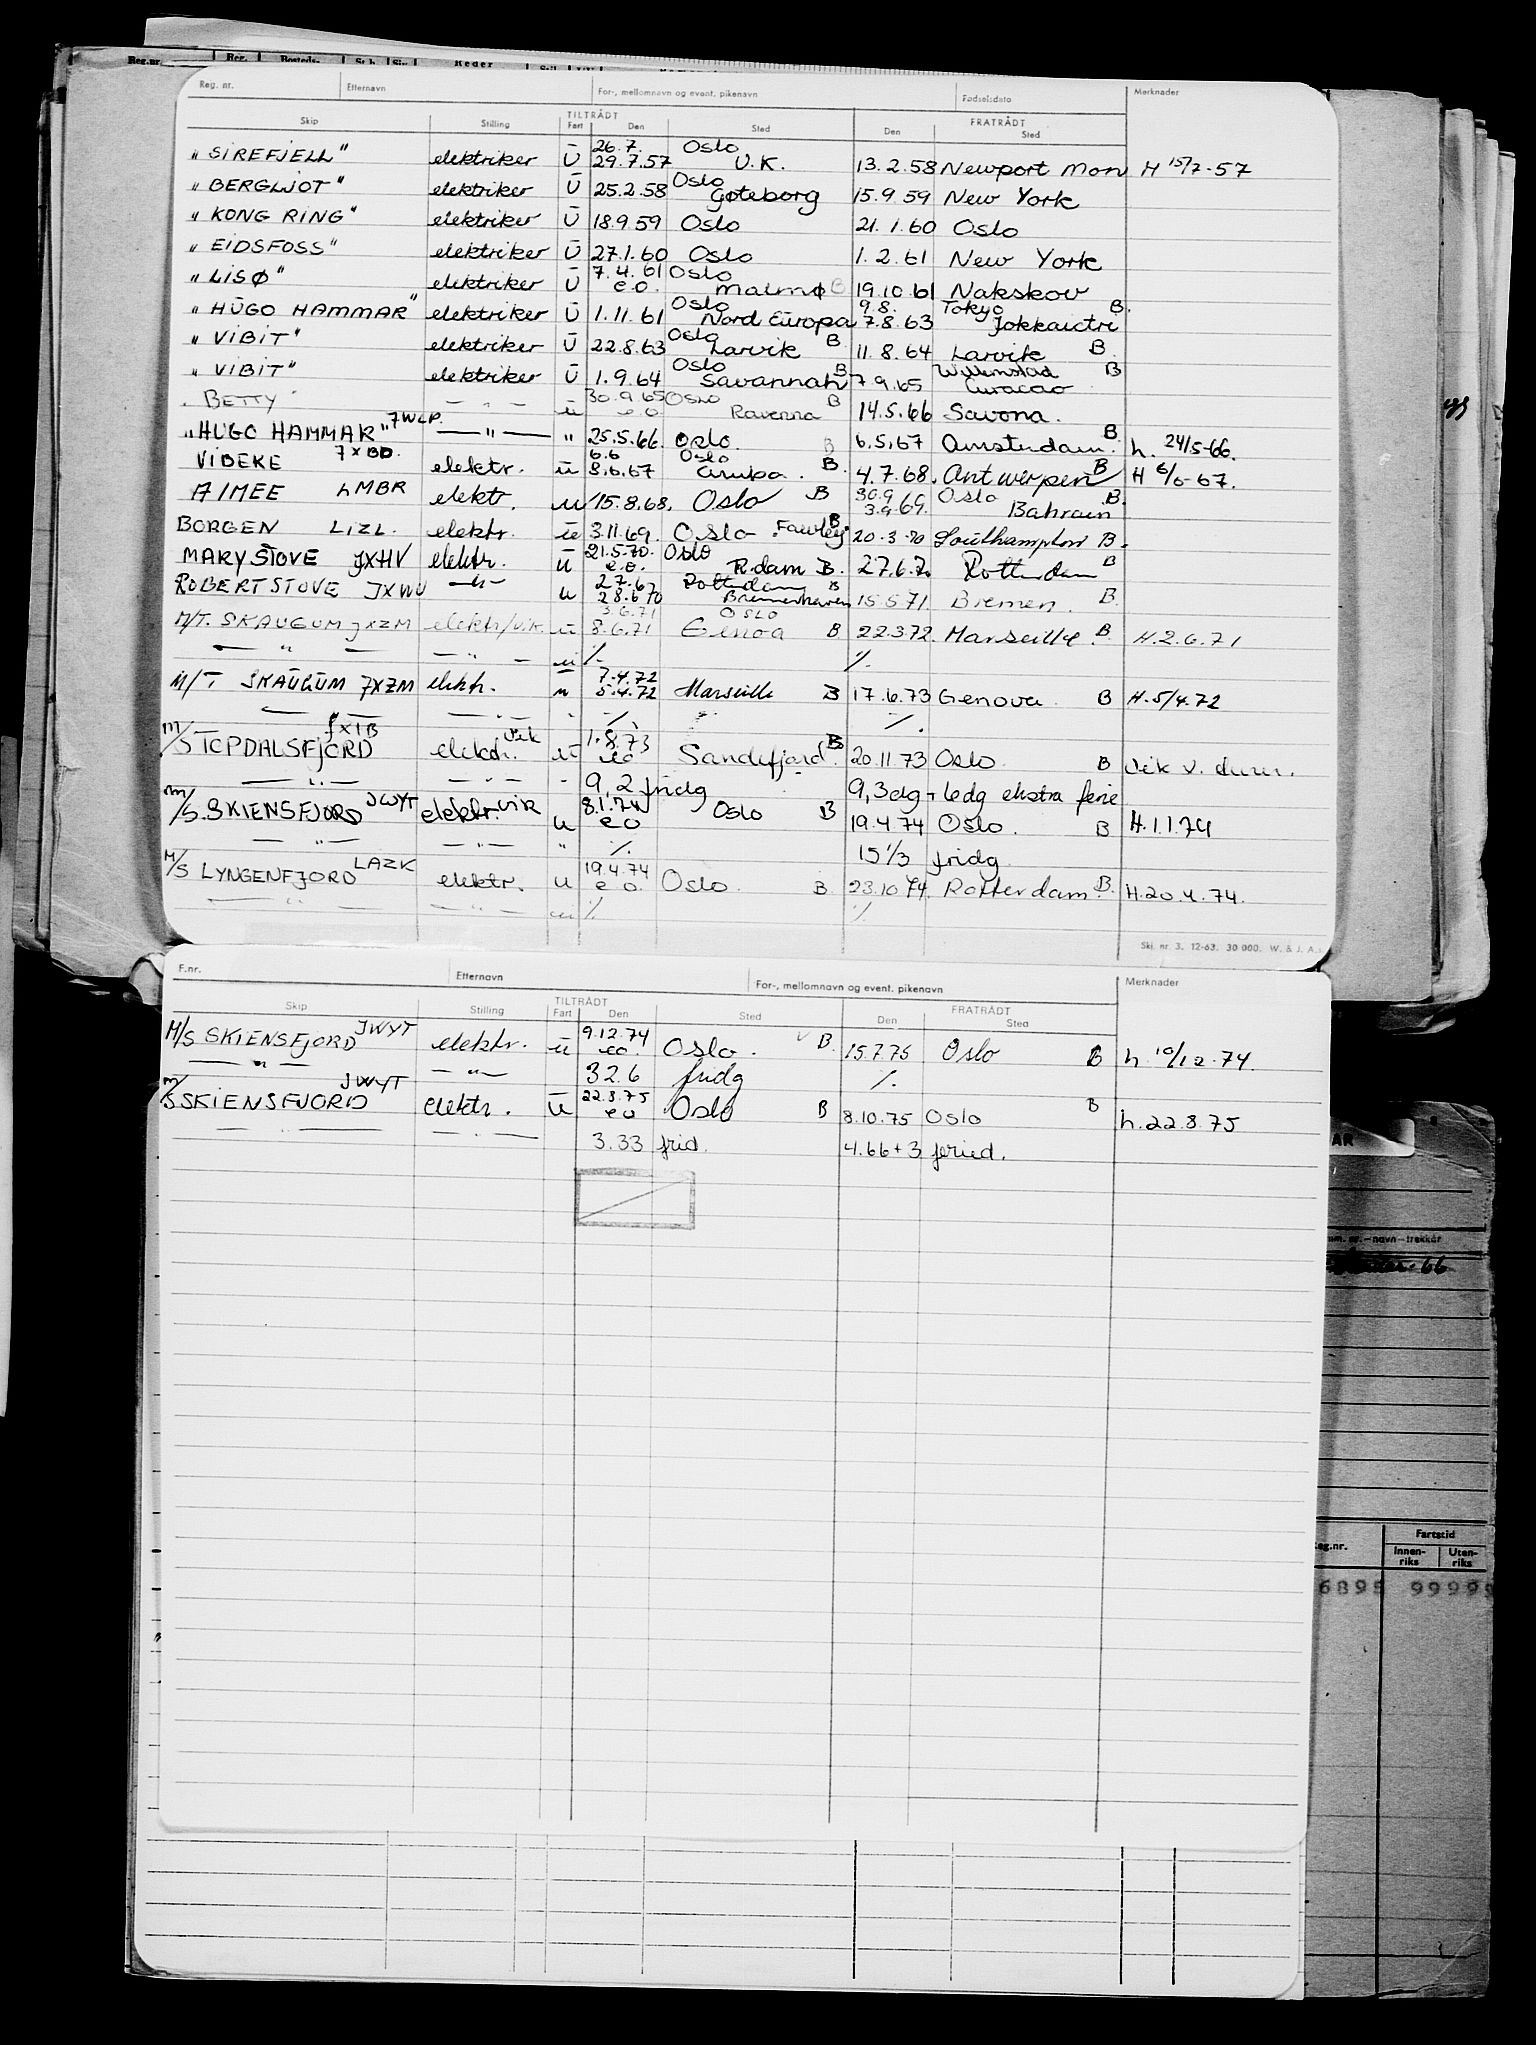 Reg. nr. Etternavn For-, mellomnavn og event. pikenavn Fødselsdato Merknader
TILTRÅDT FRATRÅDT
Skip Stilling Fart Den Sted Den Sted
26.7. Oslo
"SIREFJELL" elektriker U 29.7.57 U.K. 13.2.58 Newport Mon H 15/7-57
Oslo
"BERGLJOT" elektriker U 25.2.58 Gøteborg 15.9 59 New York
"KONG RING" elektriker U 18.9 59 Oslo 21.1.60 Oslo
"EIDSFOSS" elektriker U 27.1.60 Oslo 1.2.61 New York
7.4.61 Oslo
"LISØ" elektriker U e.o. Malmø B 19.10.61 Nakskov
Oslo 9.8. Tokyo B.
"HUGO HAMMAR" elektriker U 1.11.61 Nord Europa 7.8.63
Oslo
"VIBIT" elektriker U 22.8.63 Larvik B 11.8.64 Larvik B.
Oslo B Willemstad B
"VIBIT" elektriker U 1.9.64 Savannah 7.9.65 Curacao
30.9.65 Oslo B
BETTY — " — u e.o. Ravenna 14.5.66 Savona.
"HUGO HAMMAR" JWLP. — " — " 25.5.66. Oslo. B 6.5.67 Amsterdam. B. h. 24/5-66.
6.6 Oslo
VIBEKE JXBD. elektr. u 8.6.67 Aruba. B. 4.7.68. Antwerpen B H 6/6-67.
30.9 Oslo B.
AIMEE LMBR elektr. u 15.8.68. Oslo B 3.9.69. Bahrain
BORGEN LIZL. elektr. u 3.11.69. Oslo - Fawley B. 20.3.70 Southampton B.
21.5.70. Oslo
MARY STOVE JXHV elektr. u e.o. R.dam B. 27.6.70 Rotterdam B
27.6 Rotterdam B
ROBERT STOVE JXWU — " — u 28.6 70 Bremerhaven 15.5 71 Bremen. B.
3.6.71 OSLO
M/T. SKAUGUM JXZM elektr/vik. u 8.6.71 Genoa B 22.3.72. Marseille B. H.2.6.71
— " — — " — u ·/. ·/.
7.4.72
M/T SKAUGUM JXZM elektr. u 5.4.72 Marseille B 17.6.73 Genova B H.5/4.72
— " — — " — " ·/. " ·/.
JXIB vik 1.8.73
M/S TOPDALSFJORD elektr. u eo Sandefjord. B 20.11 73 Oslo. B vik v.
— " — — " — " 9,2 fridg 9,3dg + 6dg ekstra ferie
8.1.74
M/S. SKIENSFJORD JWYT elektr. vik u e o Oslo B 19.4 74 Oslo. B H.1.1.74
— " — — " — " ·/. 15 1/3 fridg.
19.4.74
M/S LYNGENFJORD LAZK elektr. u e o. Oslo. B. 23.10 74. Rotterdam. B. H.20.4.74.
— " — — " — u ·/. ·/.
Skj. nr. 3. 12-63. 30 000. W. & J. A.
F.nr. Etternavn For-, mellomnavn og event. pikenavn Merknader
TILTRÅDT FRATRÅDT
Skip Stilling Fart Den Sted Den Sted
9.12.74
M/S SKIENSFJORD JWYT elektr. u eo. Oslo. B. 15.7.75 Oslo B h. 10/12.74.
— " — — " — 32.6 fridg ·/.
22.8.75
M/S SKIENSFJORD JWYT elektr. u e o Oslo B 8.10.75 Oslo B h.22.8.75
— " — — " — 3.33 frid. 4.66 + 3 feried.
mm. nr. — navn — trekkår
66
eg.nr. Fartstid
Innen-riks Uten-riks
6895 99999